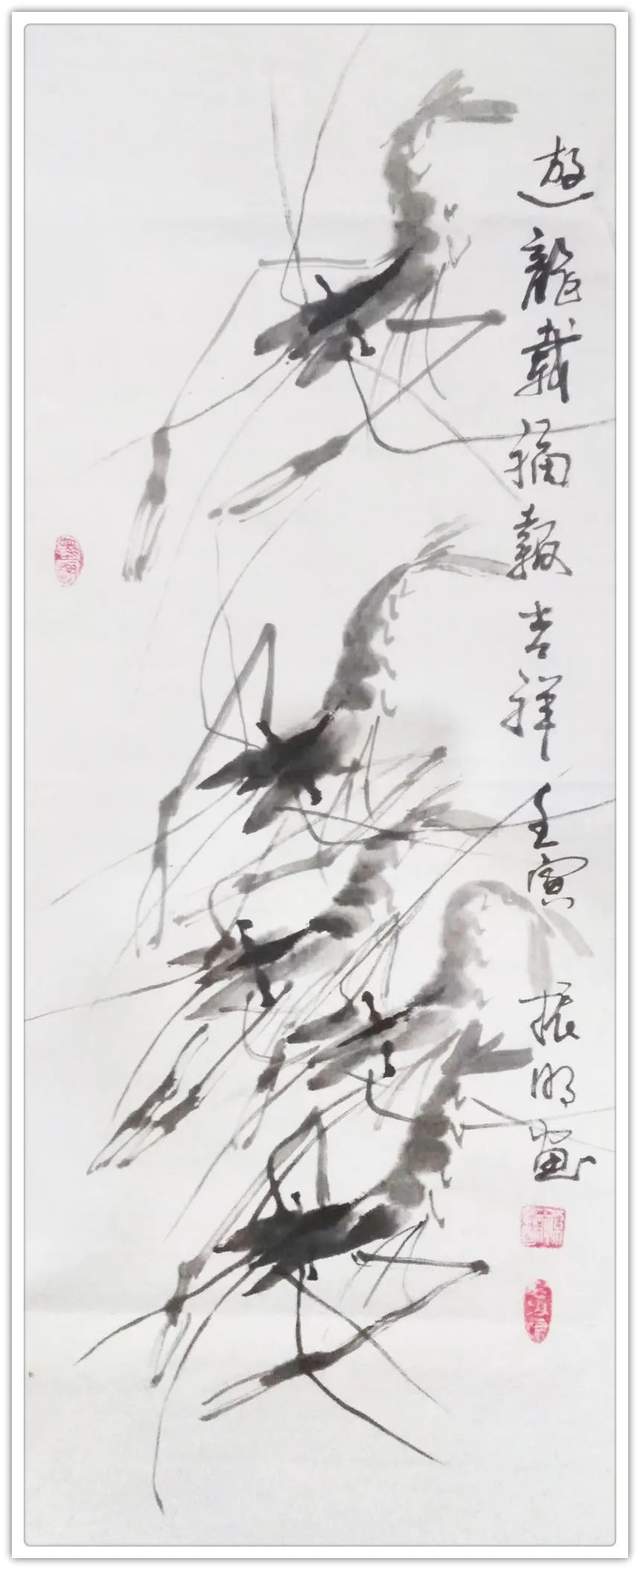 遊龍載福報吉祥 壬寅 振明畫